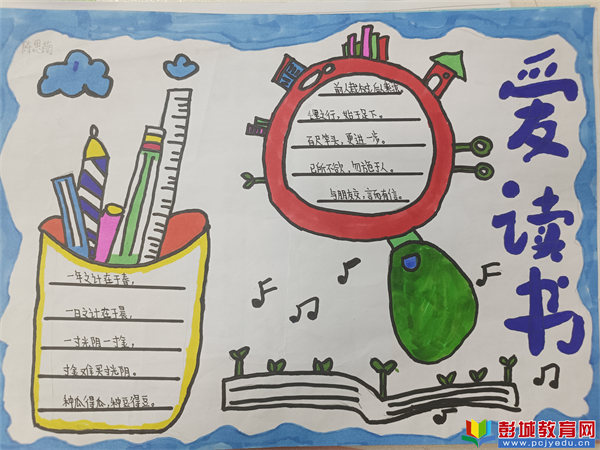 陈思蒟
爱读书
前人栽树,后人乘凉
千里之行,始于足下。
百尺竿头,更进一步。
己所不欲,勿施于人。
与朋友交,言而有信。
一年之计在于春,
一日之计在于晨,
一寸光阴一寸金,
寸金难买寸光阴。
种瓜得瓜,种豆得豆。
彭城教育网
www.pcjyedu.cn